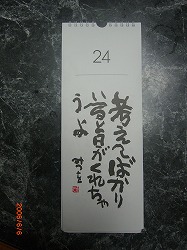 24
考えてばかり
いると日がくれちゃ
うよ
2006/6/6